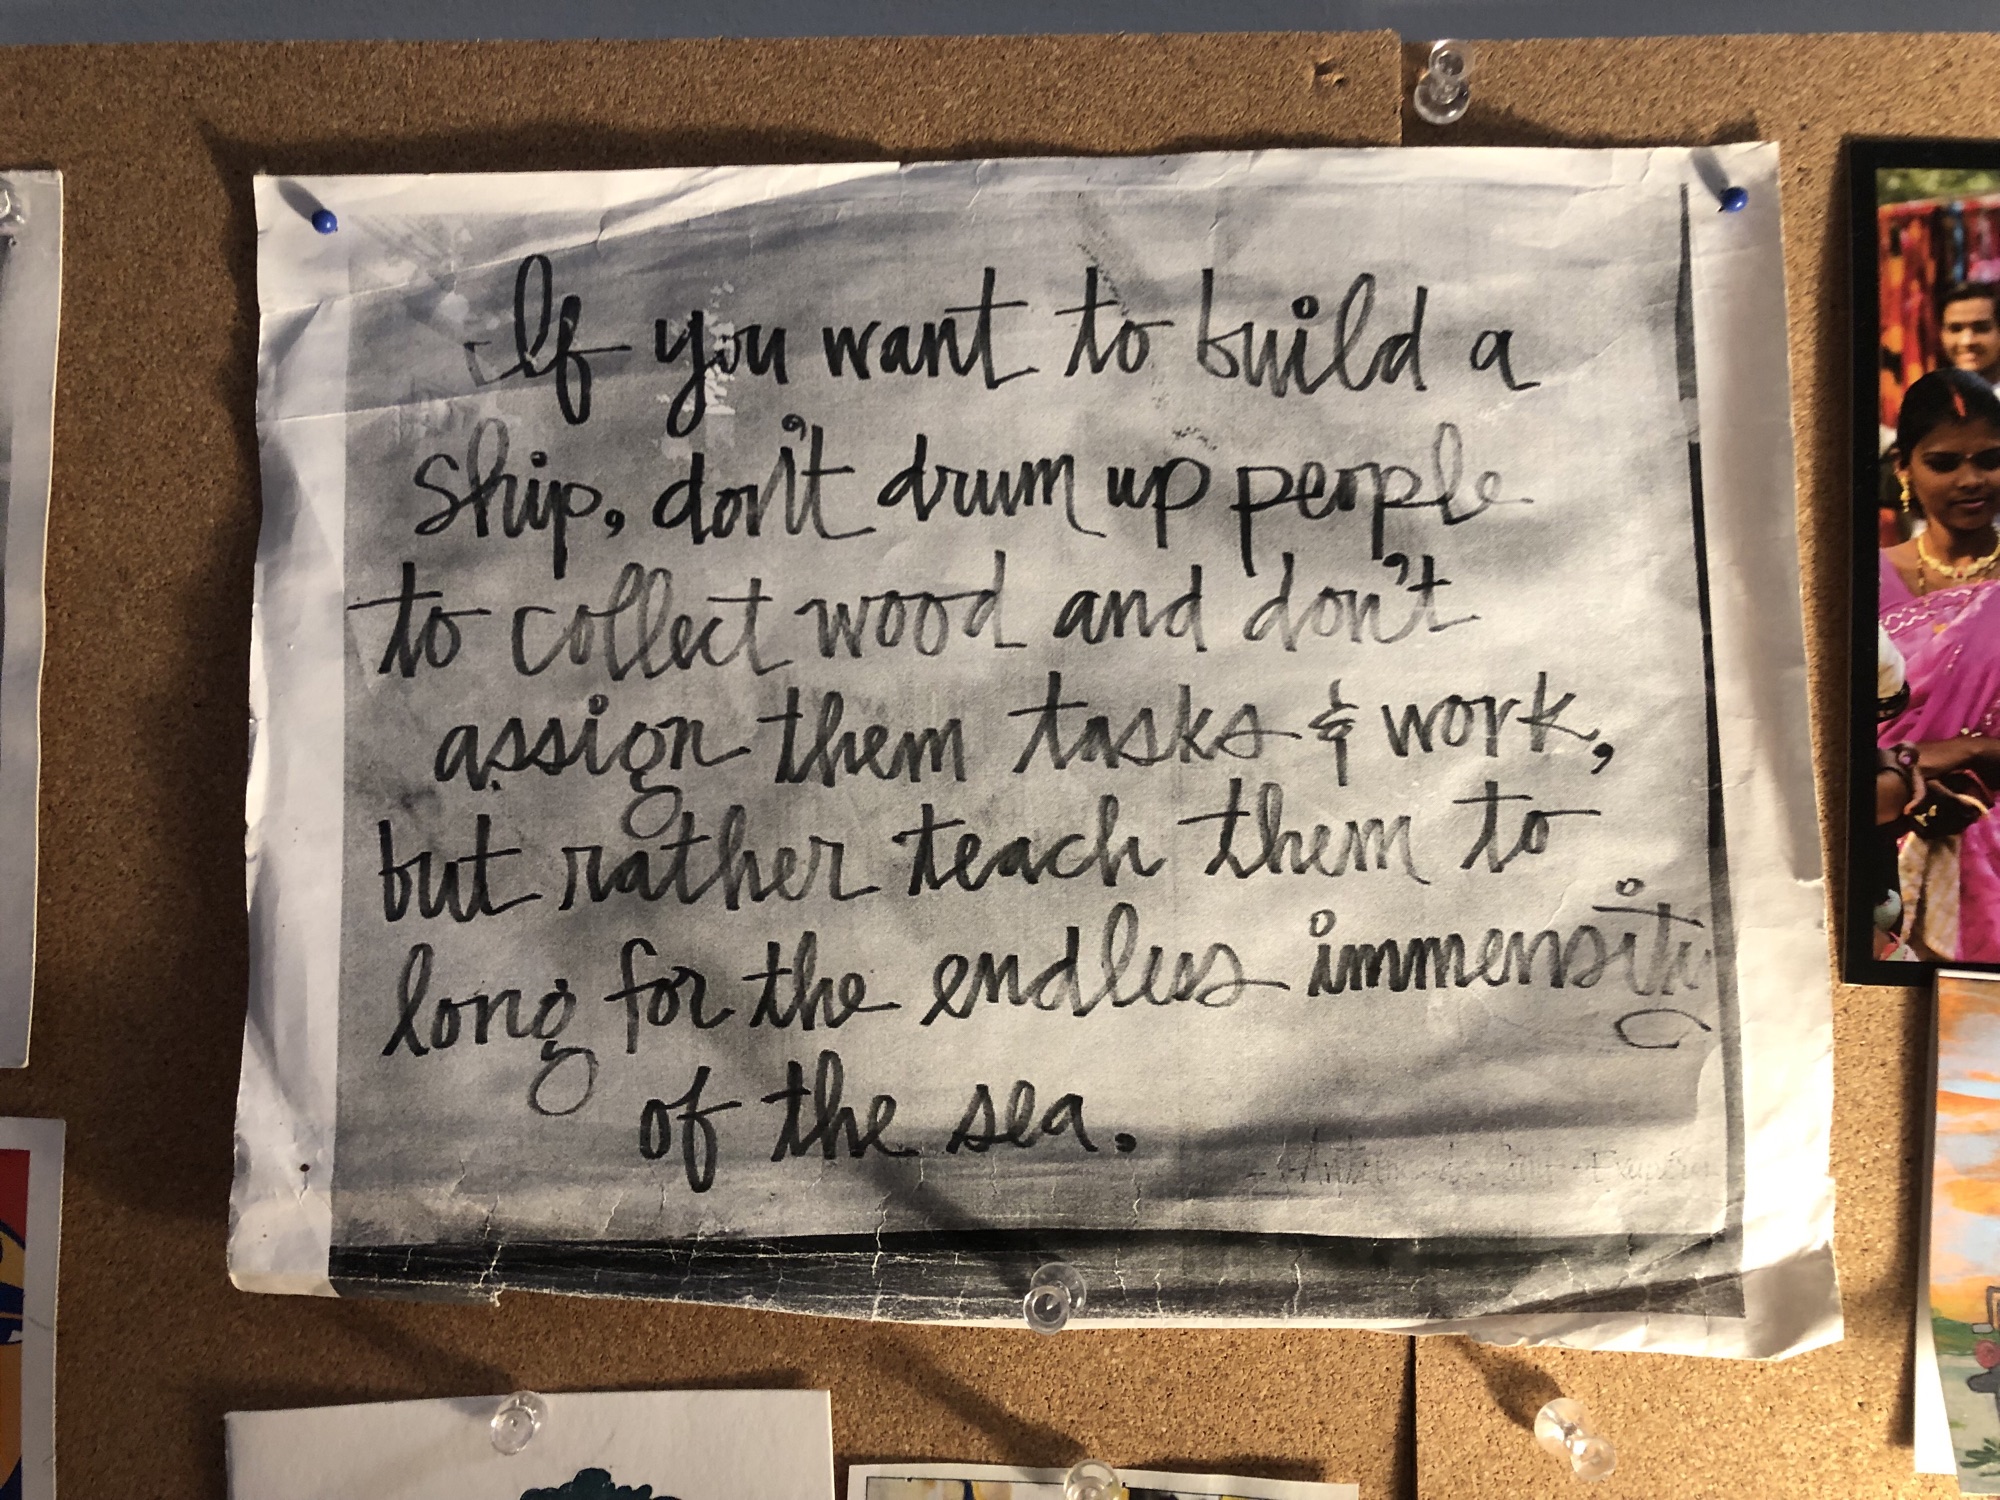 If you want to build a
ship, don't drum up people
to collect wood and don't
assign them tasks & work,
but rather teach them to
long for the endless immensity
of the sea.
- Antoine de Saint-Exupéry